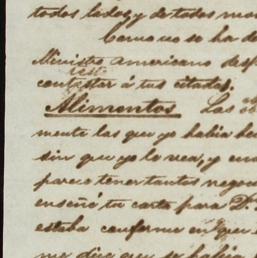 todos lados, y de todos mo
Como no se ha de
Ministro americano desp
contestar á tus citados.
Alimentos Las
mente las que yo habia he
sin que yo lo vea, y en
parece tener tantos negoc
enseñé tu carta para D.
estaba conforme en que
me dice que se habia